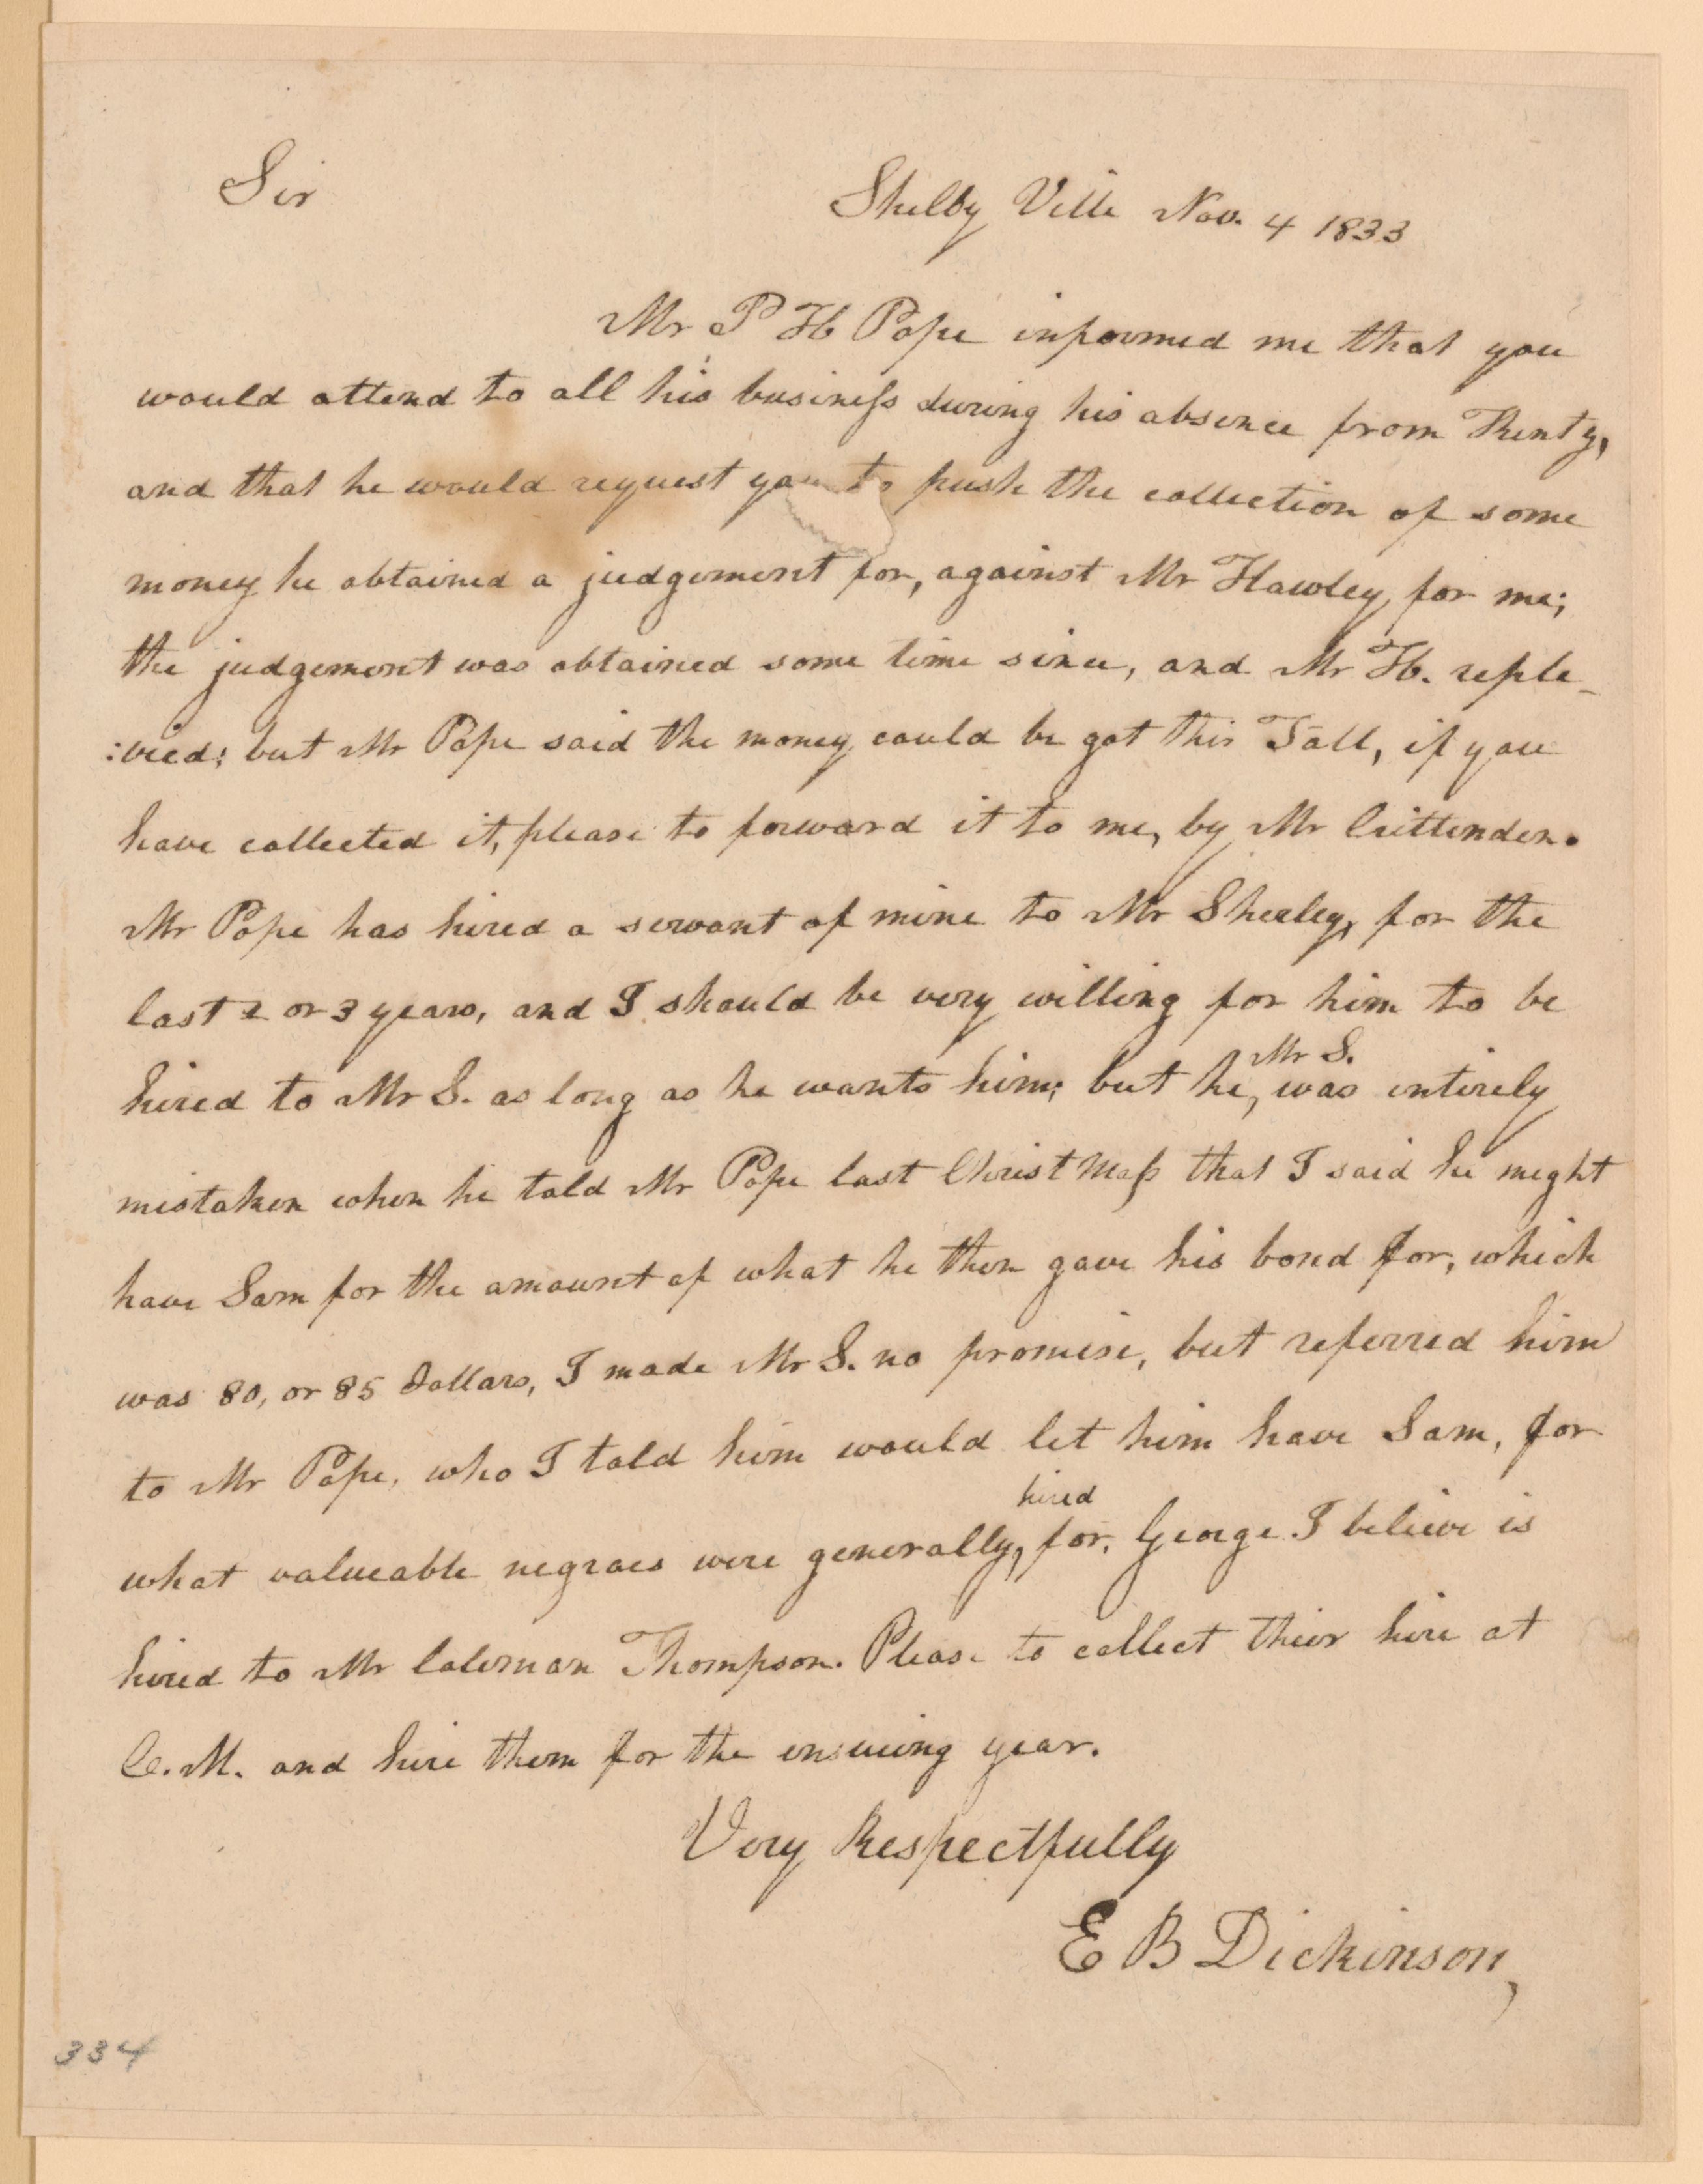 Sir
Shelby Ville Nov. 4 1833
Mr P H Pope informed me that you
would attend to all his business during his absence from Kenty,
and that he would request you to push the collection of some
money he obtained a judgement for, against Mr Hawley for me;
the judgement was obtained some time since, and Mr H. reple-
:vied; but Mr Pope said the money could be got this Fall, if you
have collected it, please to forward it to me, by Mr Crittenden.
Mr Pope has hired a servant of mine to Mr Sherley, for the
last 2 or 3 years, and I should be very willing for him to be
hired to Mr S. as long as he wants him; but he, Mr S. was entirely
mistaken when he told Mr Pope last Christmass that I said he might
have Sam for the amount of what he then gave his bond for, which
was 80, or 85 Dollars, I made Mr S. no promise, but referred him
to Mr Pope, who I told him would let him have Sam, for
what valueable negroes were generally, hired for. George I believe is
hired to Mr Coleman Thompson. Please to collect their hire at
C.M. and hire them for the ensuing year.
Very Respectfully
E B Dickinson,
334